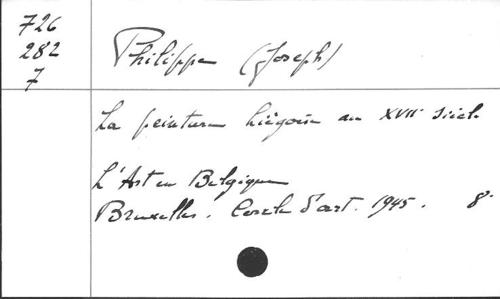 726
282
7
Philippe (Joseph)
La peinture liégoise au XVIIe siècle
L'Art en Belgique
Bruxelles. Cercle d'art. 1945. 8°